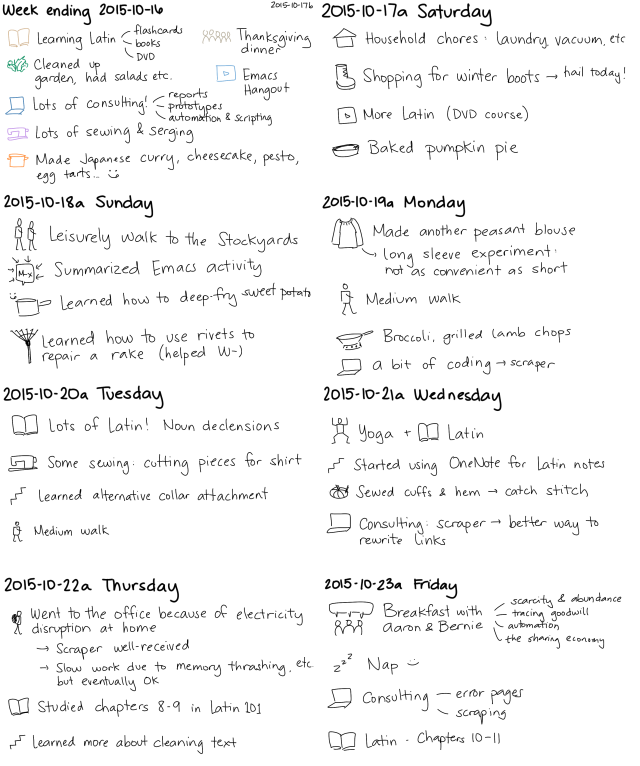 Week ending 2015-10-16
2015-10-17b
Learning Latin
flashcards
books
DVD
Thanksgiving
dinner
Cleaned up
garden, had salads etc.
Emacs
Hangout
Lots of consulting!
reports
prototypes
automation & scripting
Lots of sewing & serging
Made Japanese curry, cheesecake, pesto,
egg tarts...
2015-10-17a Saturday
Household chores: laundry, vacuum, etc
Shopping for winter boots → hail today!
More Latin (DVD course)
Baked pumpkin pie
2015-10-18a Sunday
Leisurely walk to the Stockyards
M-x
Summarized Emacs activity
Learned how to deep-fry sweet potato
Learned how to use rivets to
repair a rake (helped W-)
2015-10-19a Monday
Made another peasant blouse
long sleeve experiment:
not as convenient as short
Medium walk
Broccoli, grilled lamb chops
a bit of coding → scraper
2015-10-20a Tuesday
Lots of Latin! Noun declensions
Some sewing: cutting pieces for shirt
Learned alternative collar attachment
Medium walk
2015-10-21a Wednesday
Yoga + Latin
Started using OneNote for Latin notes
Sewed cuffs & hem → catch stitch
Consulting: scraper → better way to
rewrite links
2015-10-22a Thursday
Went to the office because of electricity
disruption at home
→ Scraper well-received
→ Slow work due to memory thrashing, etc
but eventually OK
Studied chapters 8-9 in Latin 101
Learned more about cleaning text
2015-10-23a Friday
Breakfast with
Aaron & Bernie
scarcity & abundance
tracing goodwill
automation
the sharing economy
zzz Nap
Consulting
error pages
scraping
Latin - Chapters 10-11